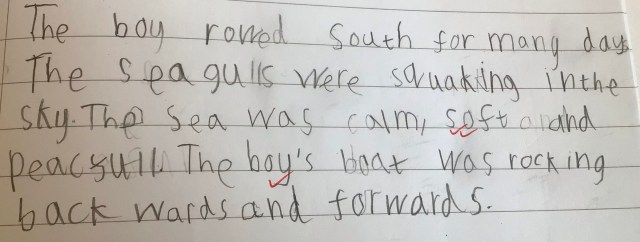 The boy rowed south for many days
The seagulls were squakting in the
sky. The sea was calm, soft and
peacsull. The boy's boat was rocking
back wards and forwards.